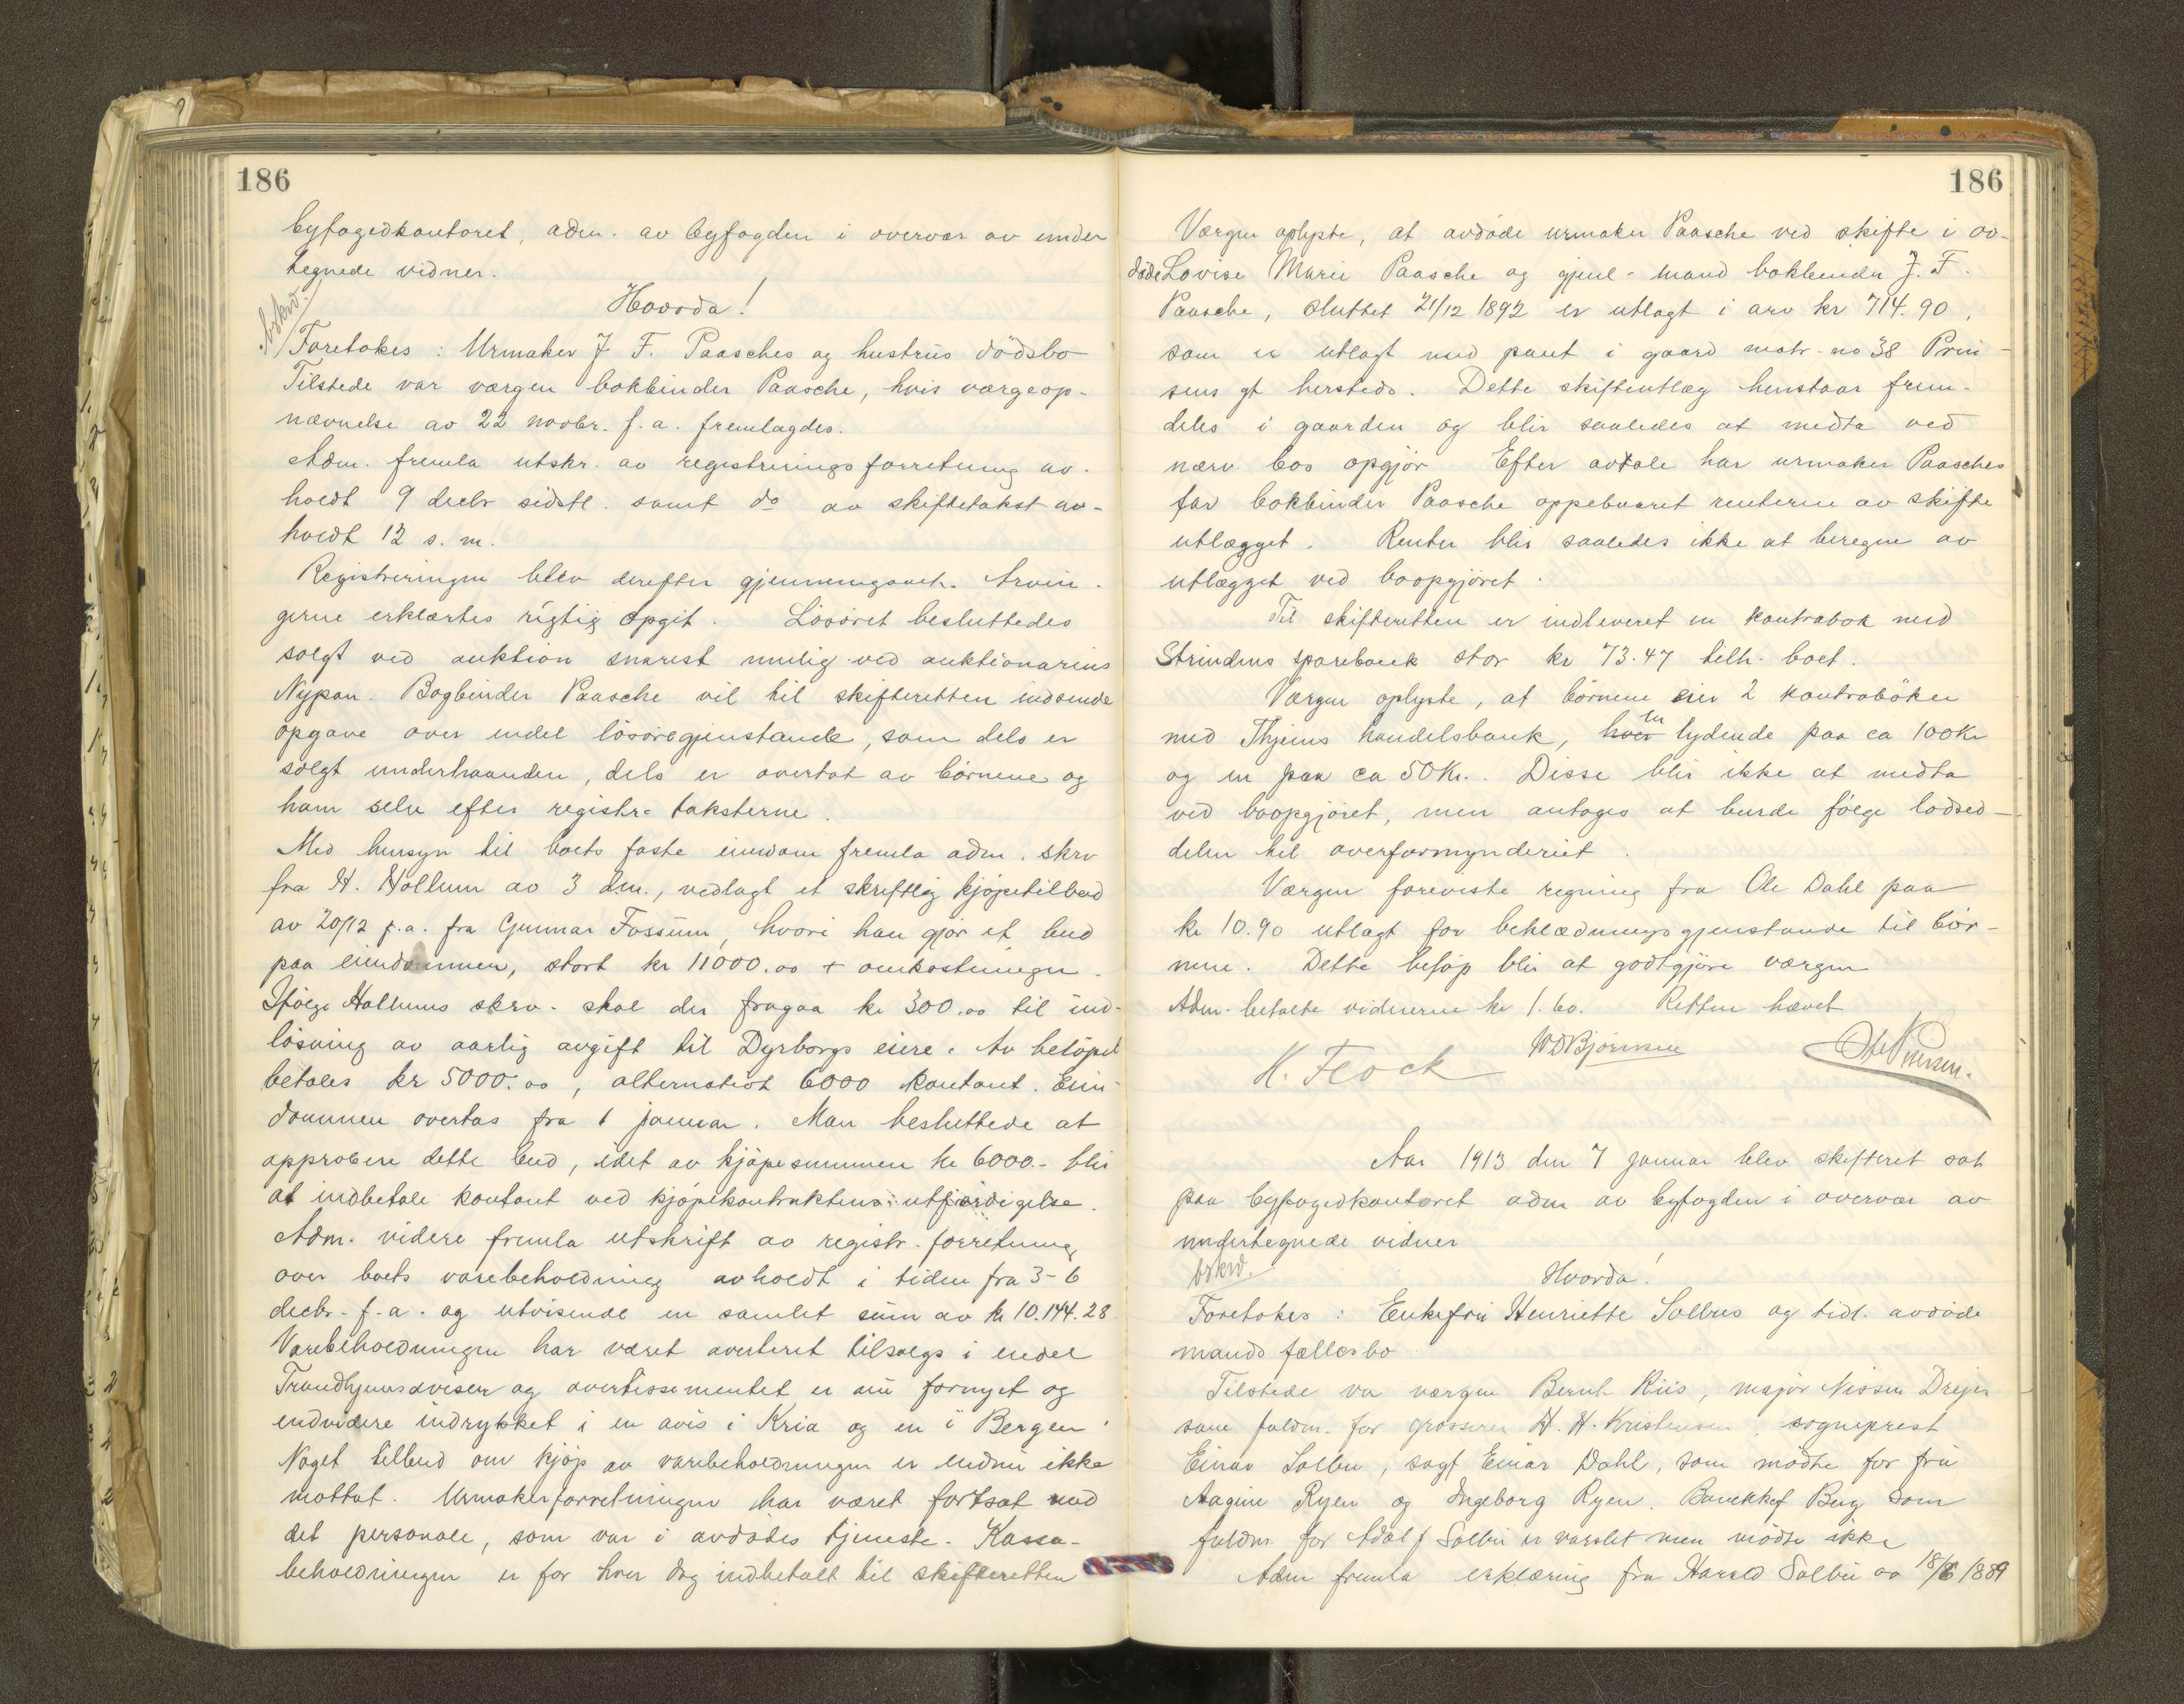 186
byfogedkontoret, adm. av byfogden i overvær av under
tegnede vidner.
Hvorda!
Askrd.
Foretokes: Urmaker J. F. Paasches og hustrus dödsbo
Tilstede var vergen bokbinder Paasche, hvis vergeop-
nævnelse av 22 novbr. f. a. fremlagdes.
Adm. fremla utskr. av registreringsforretning av-
holdt 9 decbr sidstl. samt do av skiftetakst av-
holdt 12 s. m.
Registreringen blev derefter gjennemgaaet. Arvin-
gerne erklærtes rigtig opgit. Lösöret besluttedes
solgt ved auktion snarest mulig ved auktionarius
Nypan. Bogbinder Paasche vil til skifteretten indsende
opgave over endel lösöregjenstande, som dels er
solgt underhaanden, dels er overtat av börnene og
ham selv efter registr. taksterne.
Med hensyn til boets faste eiendom fremla adm. skrv
fra H. Hollum av 3 dm., vedlagt et skriftlig kjöpetilbud
av 20/12 f.a. fra Gunnar Fossum, hvori han gjör et bud
paa eiendommen, stort kr 11000.00 + omkostninger.
Ifölge Hollums skrv. skal der fragaa kr 300.00 til ind-
lösning av aarlig avgift til Dyrborgs eiere. Av belöpet
betales kr 5000.00, alternativt 6000 kontant. Eien-
dommen overtas fra 1 januar. Man besluttede at
approbere dette bud, idet av kjöpesummen kr 6000.- blir
at indbetale kontant ved kjöpekontraktens utfærdigelse.
Adm. videre fremla utskrift av registr. forretning
over boets varebeholdning avholdt i tiden fra 3-6
decbr. f.a. og utvisende en samlet sum av kr 10.144.28
Varebeholdningen har været averteret tilsalgs i endel
Trondhjemsaviser og avertissementet er nu fornyet og
endvidere indrykket i en avis i Kria og en i Bergen.
Noget tilbud om kjöp av varebeholdningen er endnu ikke
mottat. Urmakerforretningen har været fortsat med
det personale, som var i avdödes tjeneste. Kassa-
beholdningen er for hver dag indbetalt til skifteretten
186
Værgen oplyste, at avdöde urmaker Paasche ved skifte i av-
döde Lovise Marie Paasche og gjenl. mand bokbinder J. F.
Paasche, sluttet 21/12 1892 er utlagt i arv kr 714.90,
som er utlagt med pant i gaard matr. no 38 Prin-
sens gt hersteds. Dette skifteutlæg henstaar frem-
deles i gaarden og blir saaledes at medta ved
nærv. bos opgjör. Efter avtale har urmaker Paasches
far bokbinder Paasche oppebaaret renterne av skifte
utlægget. Renter blir saaledes ikke at beregne av
utlægget ved boopgjöret.
Til skifteretten er indleveret en kontrabok med
Strindens sparebank stor kr 73.47 tilh. boet.
Værgen oplyste, at börnene eier 2 kontraböker
med Thjems handelsbank, hver en lydende paa ca 100 Kr
og en paa ca 50 Kr. Disse blir ikke at medta
ved boopgjöret, men antages at burde fölge lodsed-
delen til overformynderiet.
Værgen foreviste regning fra Ole Dahl paa
kr 10.90 utlagt for beklædningsgjenstande til bör-
nene. Dette belöp blir at godtgjöre værgen
Adm. betalte vidnerne kr 1.60. Retten hævet
K. Flock
WDBjörnsen
Aar 1913 den 7 januar blev skifteret sat
paa byfogedkontoret adm av byfogden i overvær av
undertegnede vidner
Askrd.
Hvorda!
Foretokes: Enkefru Henriette Solbus og tidl. avdöde
mands fællesbo
Tilstede var værgen Bernh Riis, major Nissen Drejer
som fuldm. for grosserer H. H. Kristensen, sogneprest
Einar Solbu, sagf Einar Dahl, som mödte for fru
Aagine Ryen og Ingeborg Ryen. Bankkef Berg som
fuldm. for Adolf Solbu er varslet men mödte ikke
Adm fremla erklæring fra Harald Solbu av 18/6 1889